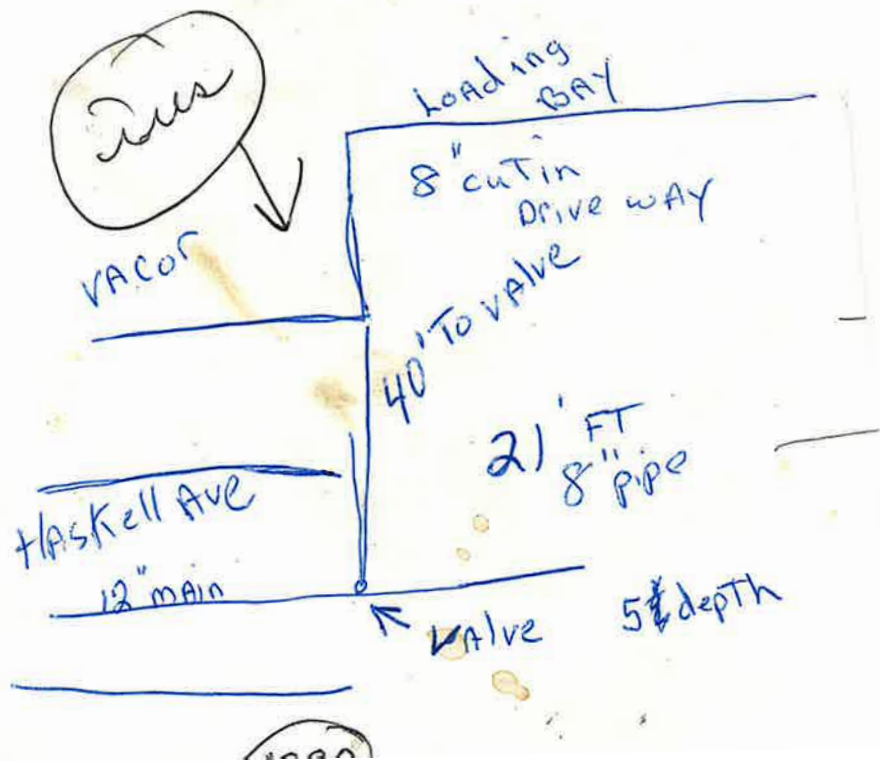 Loading
BAY
8" cuT in
Drive wAY
VACOr
40' To vAlve
21' FT
8" pipe
HAskell Ave
12" mAin
vAlve
depTh